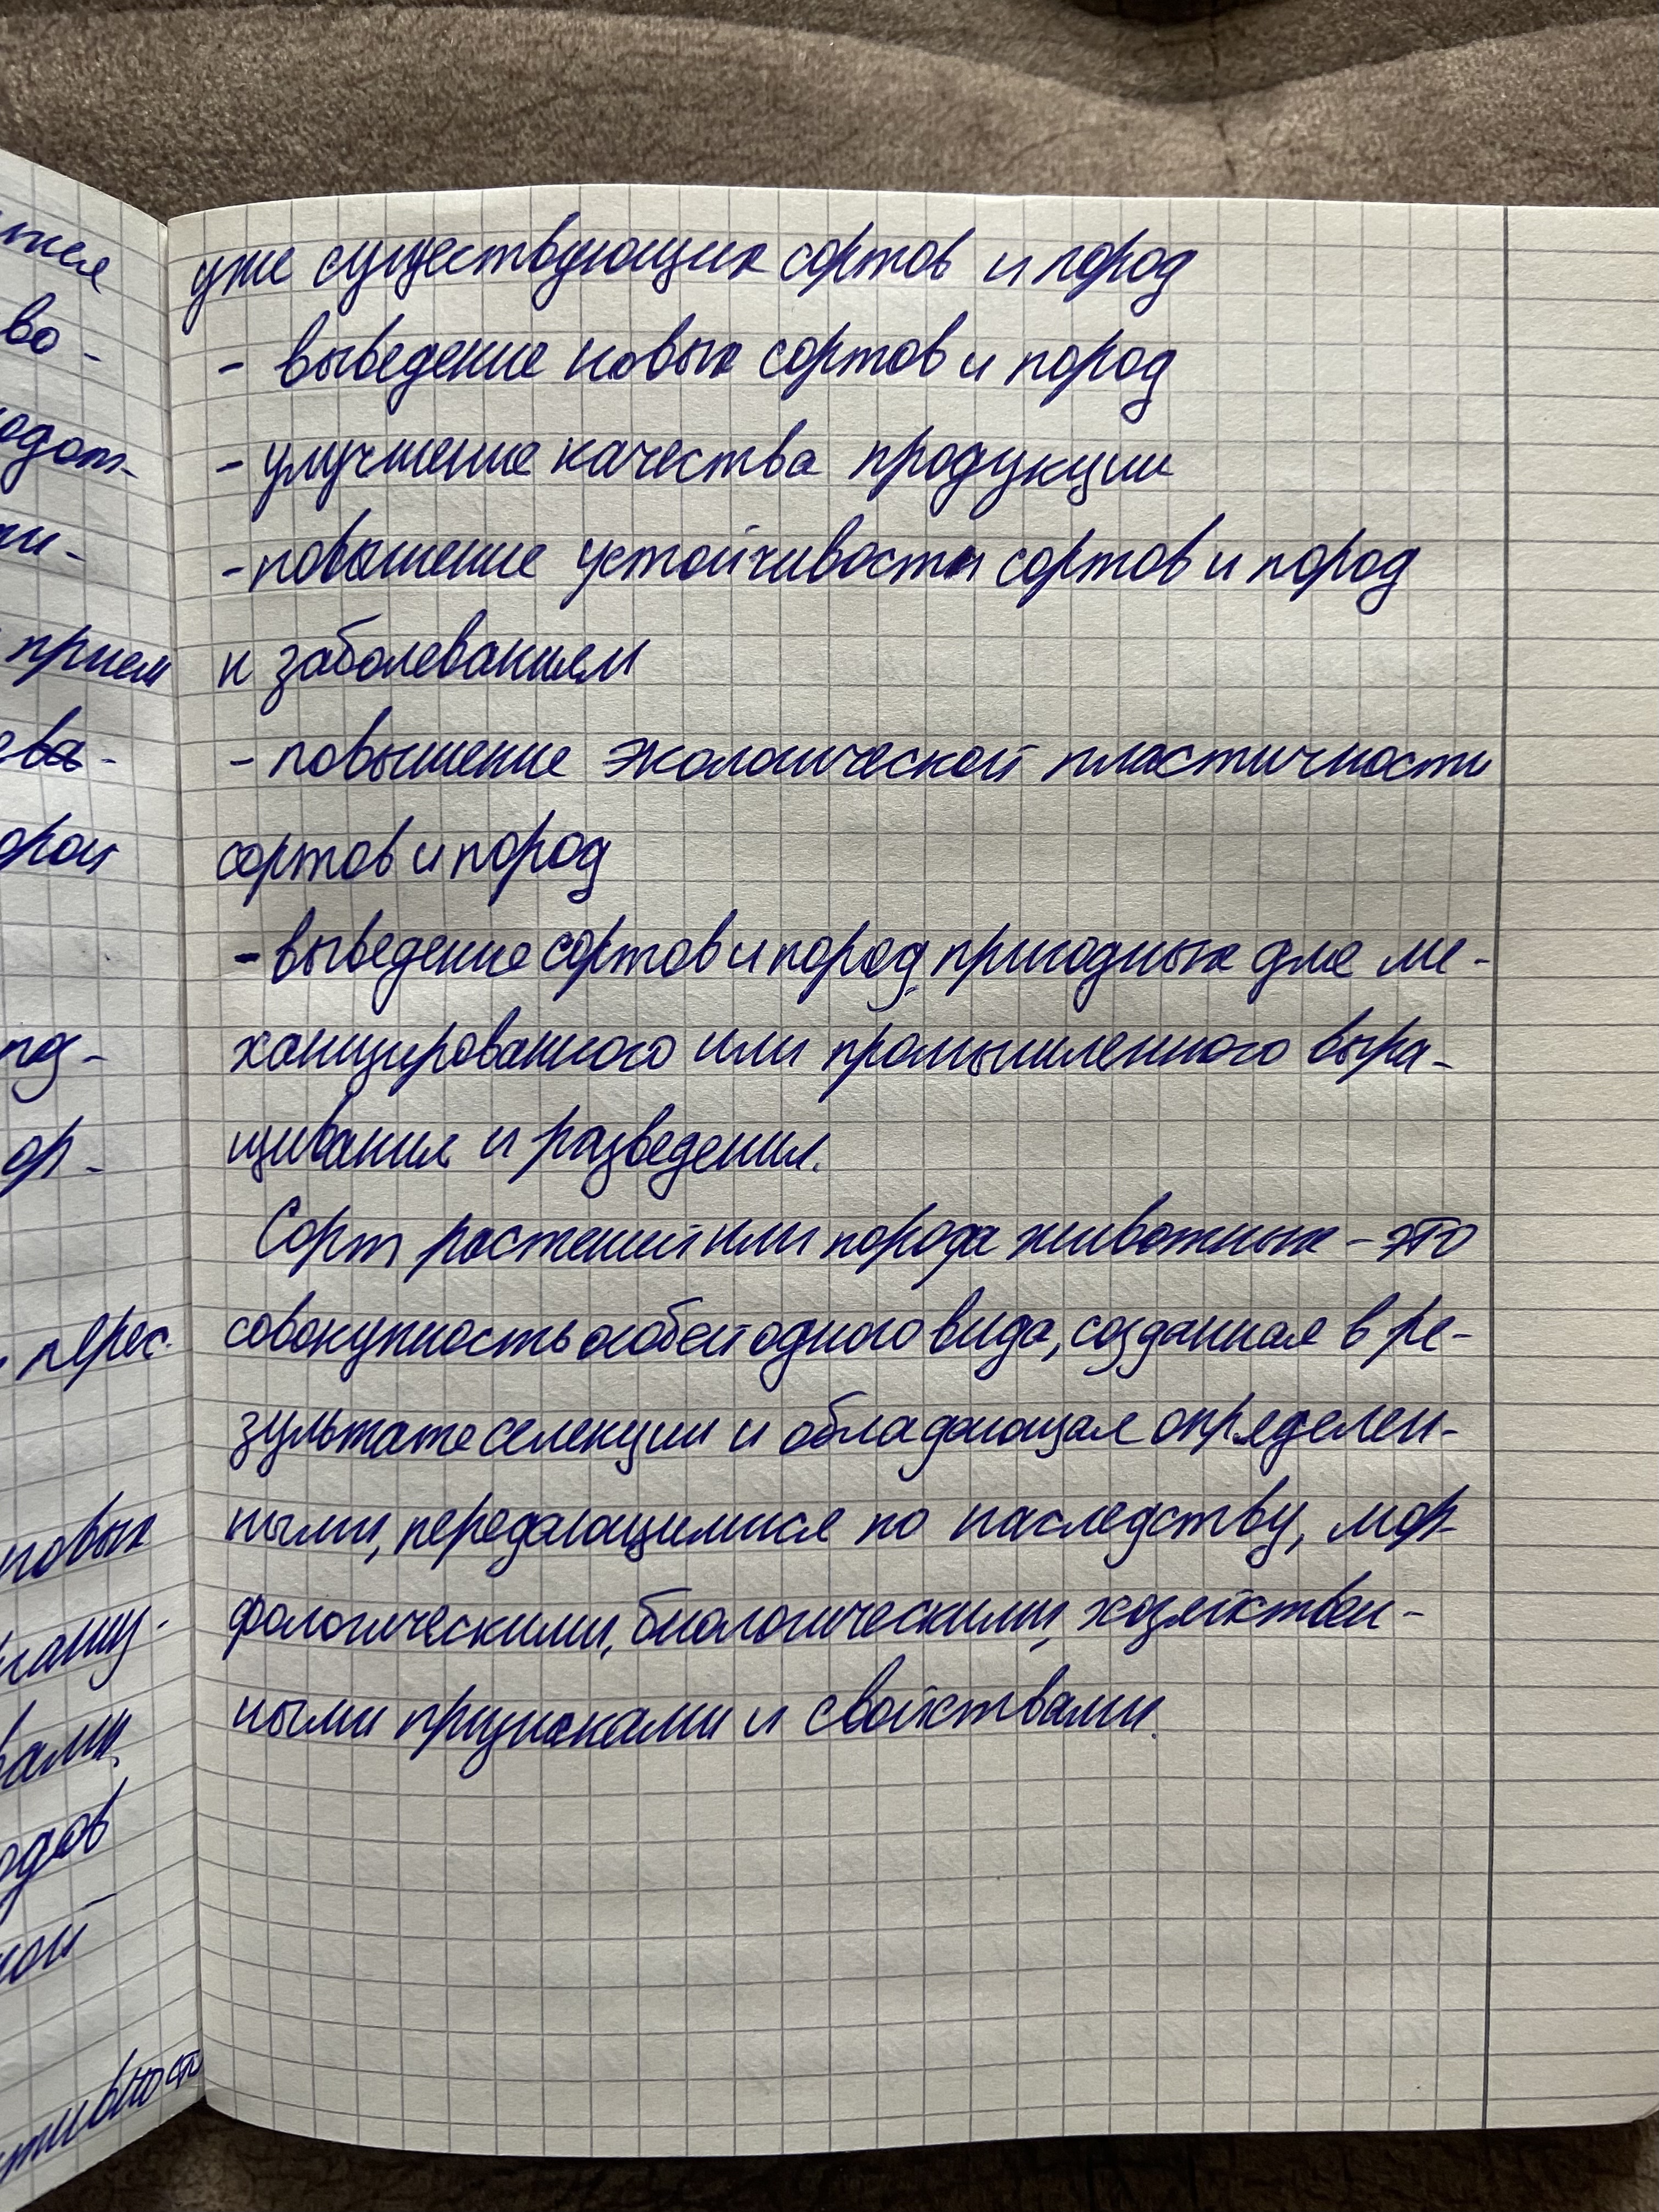 уже существующих сортов и пород
- выведение новых сортов и пород
- улучшение качества продукции
- повышение устойчивости сортов и пород
к заболеваниям
- повышение экологической пластичности
сортов и пород
- выведение сортов и пород, пригодных для ме-
ханизированного или промышленного выра-
щивания и разведения.
Сорт растений или порода животных - это
совокупность особей одного вида, созданная в ре-
зультате селекции и обладающая определен-
ными, передающимися по наследству, мор-
фологическими, биологическими, хозяйствен-
ными признаками и свойствами.
во-
прием
ор-
перес.